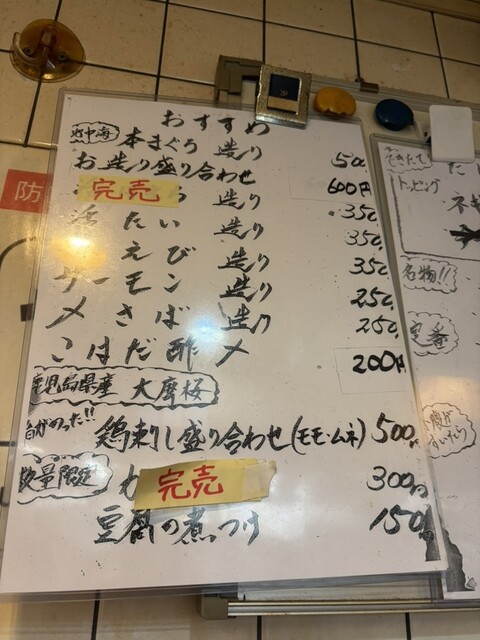 おすすめ
地中海 本まぐろ 造り 500
お造り盛り合わせ 600円
完売 造り 350
たい 造り 350
えび 造り 350
サーモン 造り 250
〆さば 造り 250
こはだ酢〆 200円
鹿児島県産 大摩桜
鶏刺し盛り合わせ(モモ・ムネ) 500円
数量限定 完売 300円
豆腐の煮つけ 150円
防
できたて
トッピング
ネギ
名物!!
定番